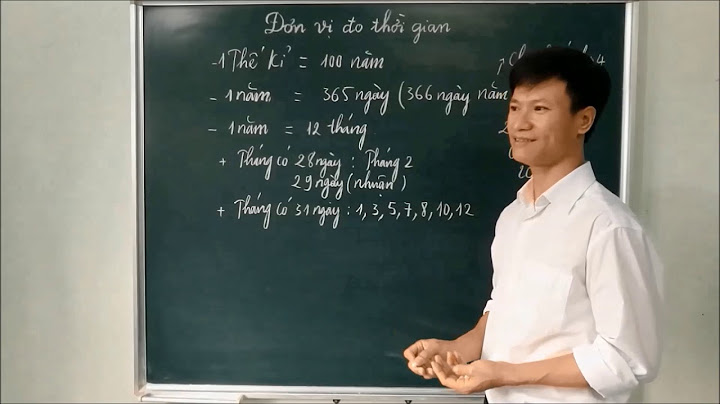 Đơn vị đo thời gian
- 1 Thế kỉ = 100 năm
- 1 năm = 365 ngày (366 ngày năm
- 1 năm = 12 tháng
+ Tháng có 28 ngày : Tháng 2
29 ngày (nhuận)
+ Tháng có 31 ngày : 1, 3, 5, 7, 8, 10, 12